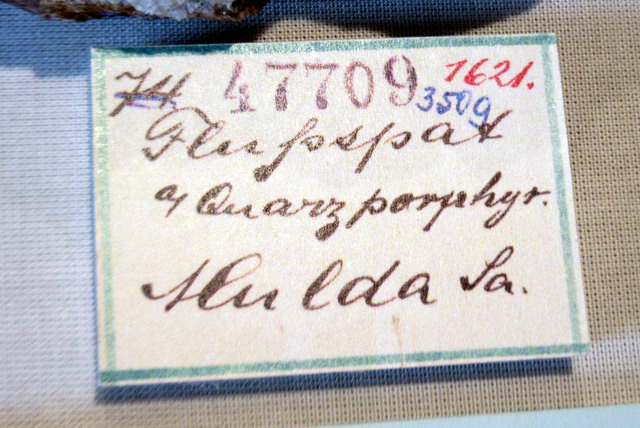 74 47709 1621.
350g
Flußspat
a/ Quarzporphyr.
Mulda Sa.